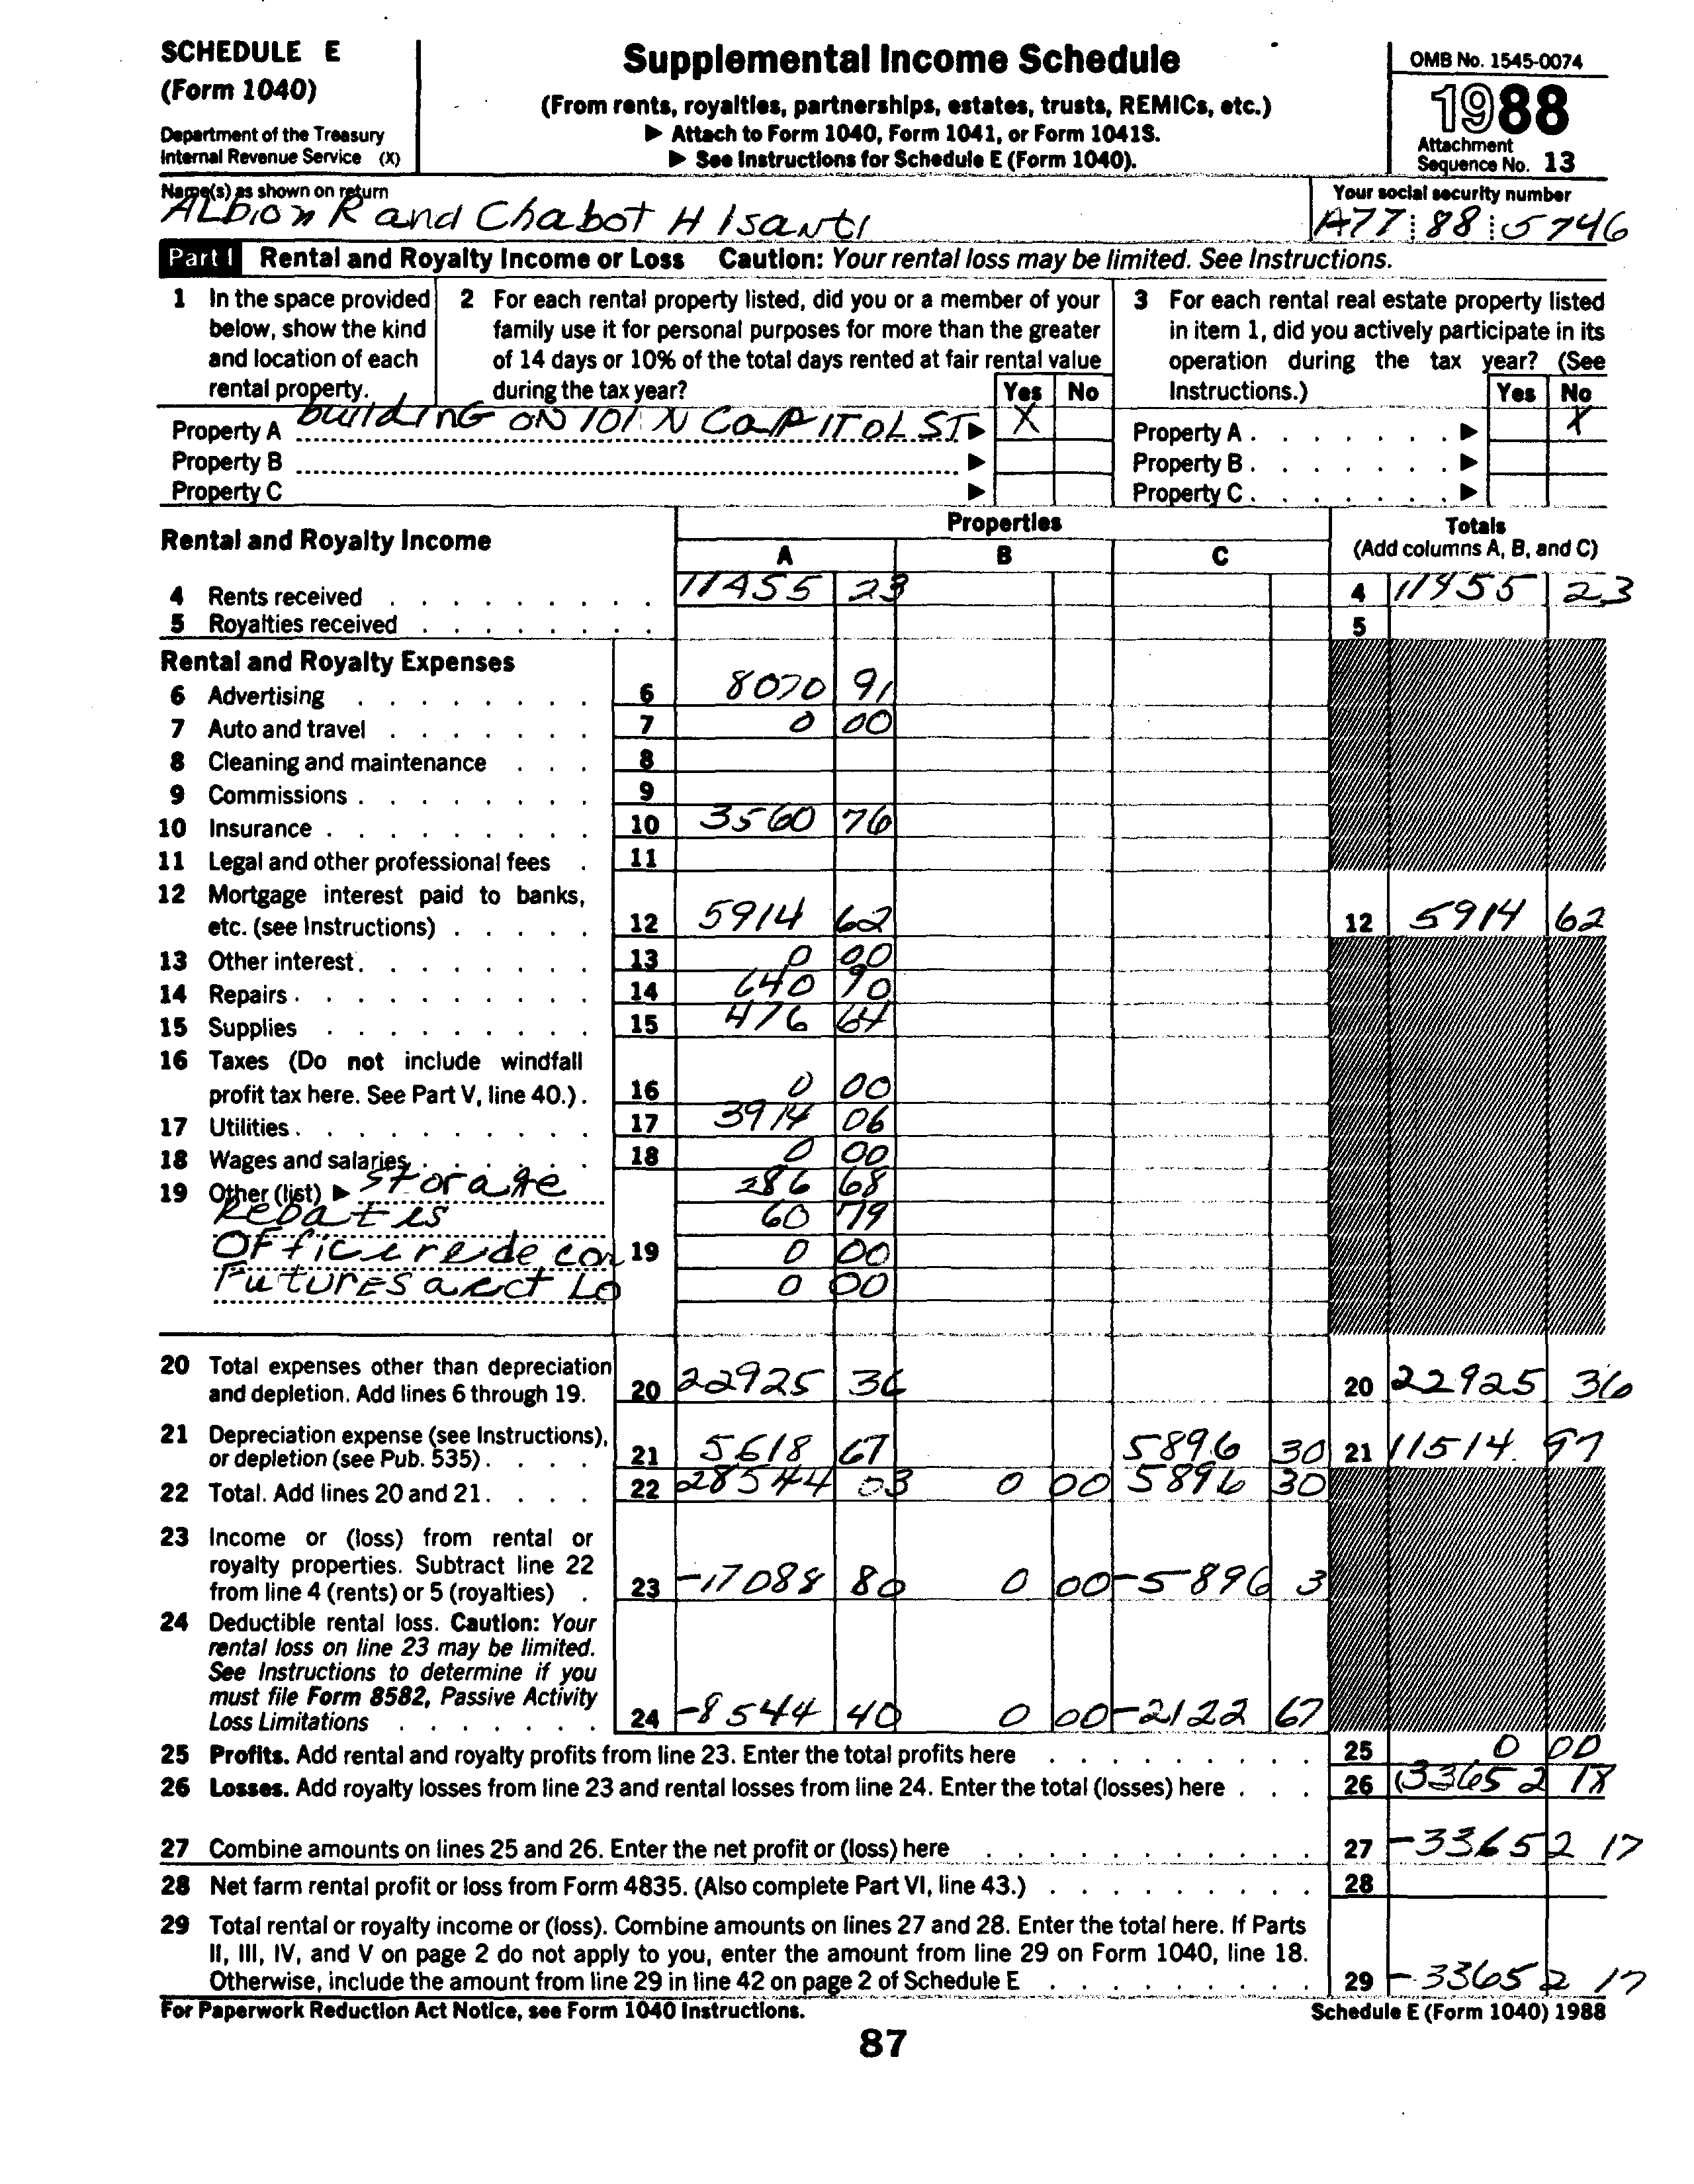 SCHEDULE E
(Form 1040)
Department of the Treasury
Internal Revenue Service (X)
Supplemental Income Schedule
(From rents, royalties, partnerships, estates, trusts, REMICs, etc.)
▶ Attach to Form 1040, Form 1041, or Form 1041S.
▶ See Instructions for Schedule E (Form 1040).
OMB No. 1545-0074
1988
Attachment
Sequence No. 13
Name(s) as shown on return
ALbion R and Chabot H Isanti
Your social security number
A77 88 5746
Part I Rental and Royalty Income or Loss Caution: Your rental loss may be limited. See Instructions.
1 In the space provided
below, show the kind
and location of each
rental property.
2 For each rental property listed, did you or a member of your
family use it for personal purposes for more than the greater
of 14 days or 10% of the total days rented at fair rental value
during the tax year?
Yes No
3 For each rental real estate property listed
in item 1, did you actively participate in its
operation during the tax year? (See
Instructions.)
Yes No
Property A building ON 101 N CaPITOL ST ▶ X
Property B ▶
Property C ▶
Property A ▶ X
Property B ▶
Property C ▶
Rental and Royalty Income
Properties
A B C
Totals
(Add columns A, B, and C)
4 Rents received 11455 23 4 11455 23
5 Royalties received 5
Rental and Royalty Expenses
6 Advertising 6 8070 91
7 Auto and travel 7 0 00
8 Cleaning and maintenance 8
9 Commissions 9
10 Insurance 10 3560 76
11 Legal and other professional fees 11
12 Mortgage interest paid to banks,
etc. (see Instructions) 12 5914 62 12 5914 62
13 Other interest 13 0 00
14 Repairs 14 640 90
15 Supplies 15 476 64
16 Taxes (Do not include windfall
profit tax here. See Part V, line 40.) 16 0 00
17 Utilities 17 3914 06
18 Wages and salaries 18 0 00
19 Other (list) ▶ Storage 286 68
Rebates 60 79
Office redecor 19 0 00
Futures acct Lo 0 00
20 Total expenses other than depreciation
and depletion. Add lines 6 through 19. 20 22925 36 20 22925 36
21 Depreciation expense (see Instructions),
or depletion (see Pub. 535) 21 5618 67 5896 30 21 11514.97
22 Total. Add lines 20 and 21. 22 28544 03 0 00 5896 30
23 Income or (loss) from rental or
royalty properties. Subtract line 22
from line 4 (rents) or 5 (royalties) 23 -17088 80 0 00 -5896 3
24 Deductible rental loss. Caution: Your
rental loss on line 23 may be limited.
See Instructions to determine if you
must file Form 8582, Passive Activity
Loss Limitations 24 -8544 40 0 00 -2122 67
25 Profits. Add rental and royalty profits from line 23. Enter the total profits here 25 0 00
26 Losses. Add royalty losses from line 23 and rental losses from line 24. Enter the total (losses) here 26 (33652 18
27 Combine amounts on lines 25 and 26. Enter the net profit or (loss) here 27 -33652 17
28 Net farm rental profit or loss from Form 4835. (Also complete Part VI, line 43.) 28
29 Total rental or royalty income or (loss). Combine amounts on lines 27 and 28. Enter the total here. If Parts
II, III, IV, and V on page 2 do not apply to you, enter the amount from line 29 on Form 1040, line 18.
Otherwise, include the amount from line 29 in line 42 on page 2 of Schedule E 29 -33652 17
For Paperwork Reduction Act Notice, see Form 1040 Instructions.
Schedule E (Form 1040) 1988
87